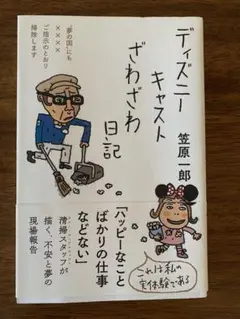 ディズニー
キャスト
ざわざわ
日記
笠原一郎
"夢の国"にも
××××
ご指示のとおり
掃除します
「ハッピーなこと
ばかりの仕事
などない」
清掃スタッフが
描く、不安と夢の
現場報告
これは私の
実体験である